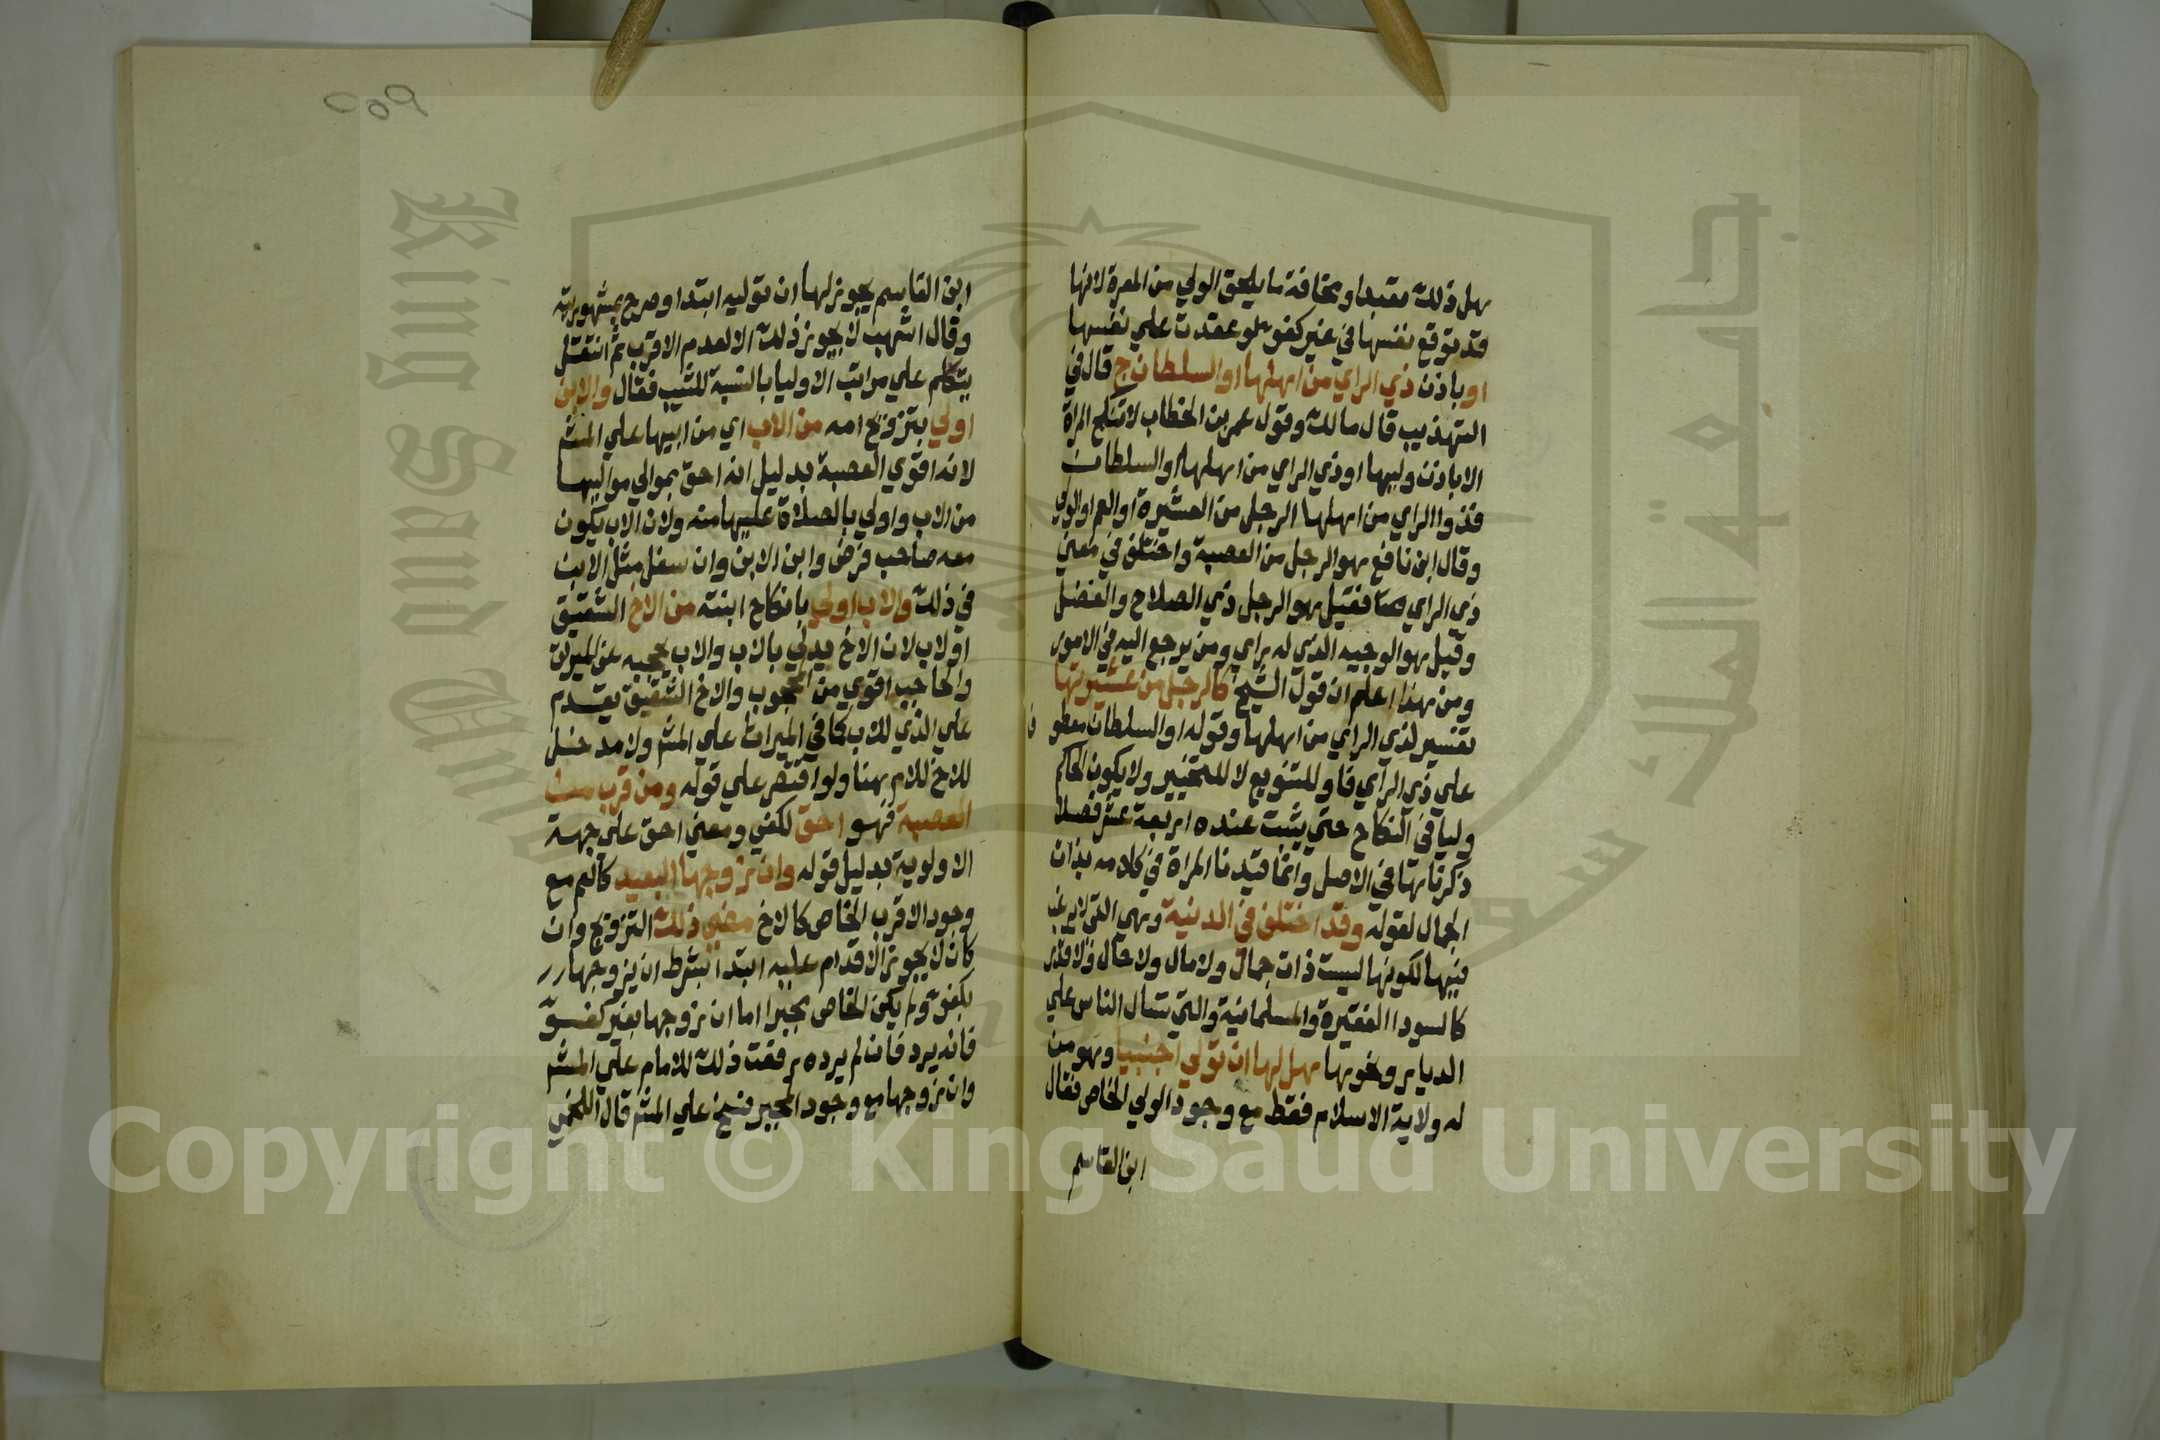 هل ذلك تعبدا ومخافة ما يلحق الولي من المعرة لانها
قد توقع نفسها في غير كفو فلو عقدت علي نفسها
او باذن ذي الراي من اهلها او السلطان ج قال في
التهذيب قال مالك وقول عمر بن الخطاب لا تنكح المراة
الا باذن وليها او ذي الراي من اهلها او السلطان
فذوا الراي من اهلها الرجل من العشيرة او العم او المولي
وقال ابن نافع هو الرجل من العصبة واختلف في معني
ذي الراي فقيل هو الرجل ذي الصلاح والفضل
وقيل هو الوجيه الذي له راي ومن يرجع اليه في الامور
ومن هذا اعلم ان قول الشيخ كالرجل من عشيرتها
تفسير لذي الراي من اهلها وقوله او السلطان معطو
علي ذي الراي فاو للتنويع لا للتخيير ولا يكون الحاكم
وليا في النكاح حتي يثبت عنده اربعة عشر فصلا
ذكرناها في الاصل وانما قيدنا المراة في كلامه بذات
الجمال لقوله وقد اختلف في الدنية وهي التي لا يرغب
فيها لكونها ليست ذات جمال ولا مال ولا حال ولا قدر
كالسودا الفقيرة والمسلمانية والتي تسال الناس علي
الديار ونحوها هل لها ان تولي اجنبيا وهو من
له ولاية الاسلام فقط مع وجود الولي الخاص فقال
ابن القاسم
٢٥٩
ابن القاسم يجوز لها ان توليه ابتدا وصرح بمشهوريته
وقال اشهب لا يجوز ذلك الا لعدم الاقرب ثم انتقل
يتكلم علي مراتب الاوليا بالنسبة للثيب فقال والابن
اولي بتزويج امه من الاب اي من ابيها علي المش
لانه اقوي العصبة بدليل انه احق بموالي مواليها
من الاب واولي بالصلاة عليها منه ولان الاب يكون
معه صاحب فرض وابن الابن وان سفل مثل الابن
في ذلك والاب اولي بانكاح ابنته من الاخ الشقيق
او لاب لان الاخ يدلي بالاب والاب يحجبه عن الميراث
والحاجب اقوي من المحجوب والاخ الشقيق يقدم
علي الذي للاب كما في الميراث علي المش ولا مدخل
للاخ للام هنا ولو اقتصر علي قوله ومن قرب من
العصبة فهو احق لكفي ومعني احق علي جهة
الاولوية بدليل قوله وان زوجها البعيد كالعم مع
وجود الاقرب الخاص كالاخ مضي ذلك التزويج وان
كان لا يجوز الاقدام عليه ابتدا بشرط ان يزوجها
بكفو ولم يكن الخاص مجبرا اما ان زوجها بغير كفو
فانه يرد فان لم يرده رفعت ذلك للامام علي المش
وان زوجها مع وجود المجبر فسخ علي المش قال اللخمي
King Saud University
جامعة الملك سعود
Copyright © King Saud University